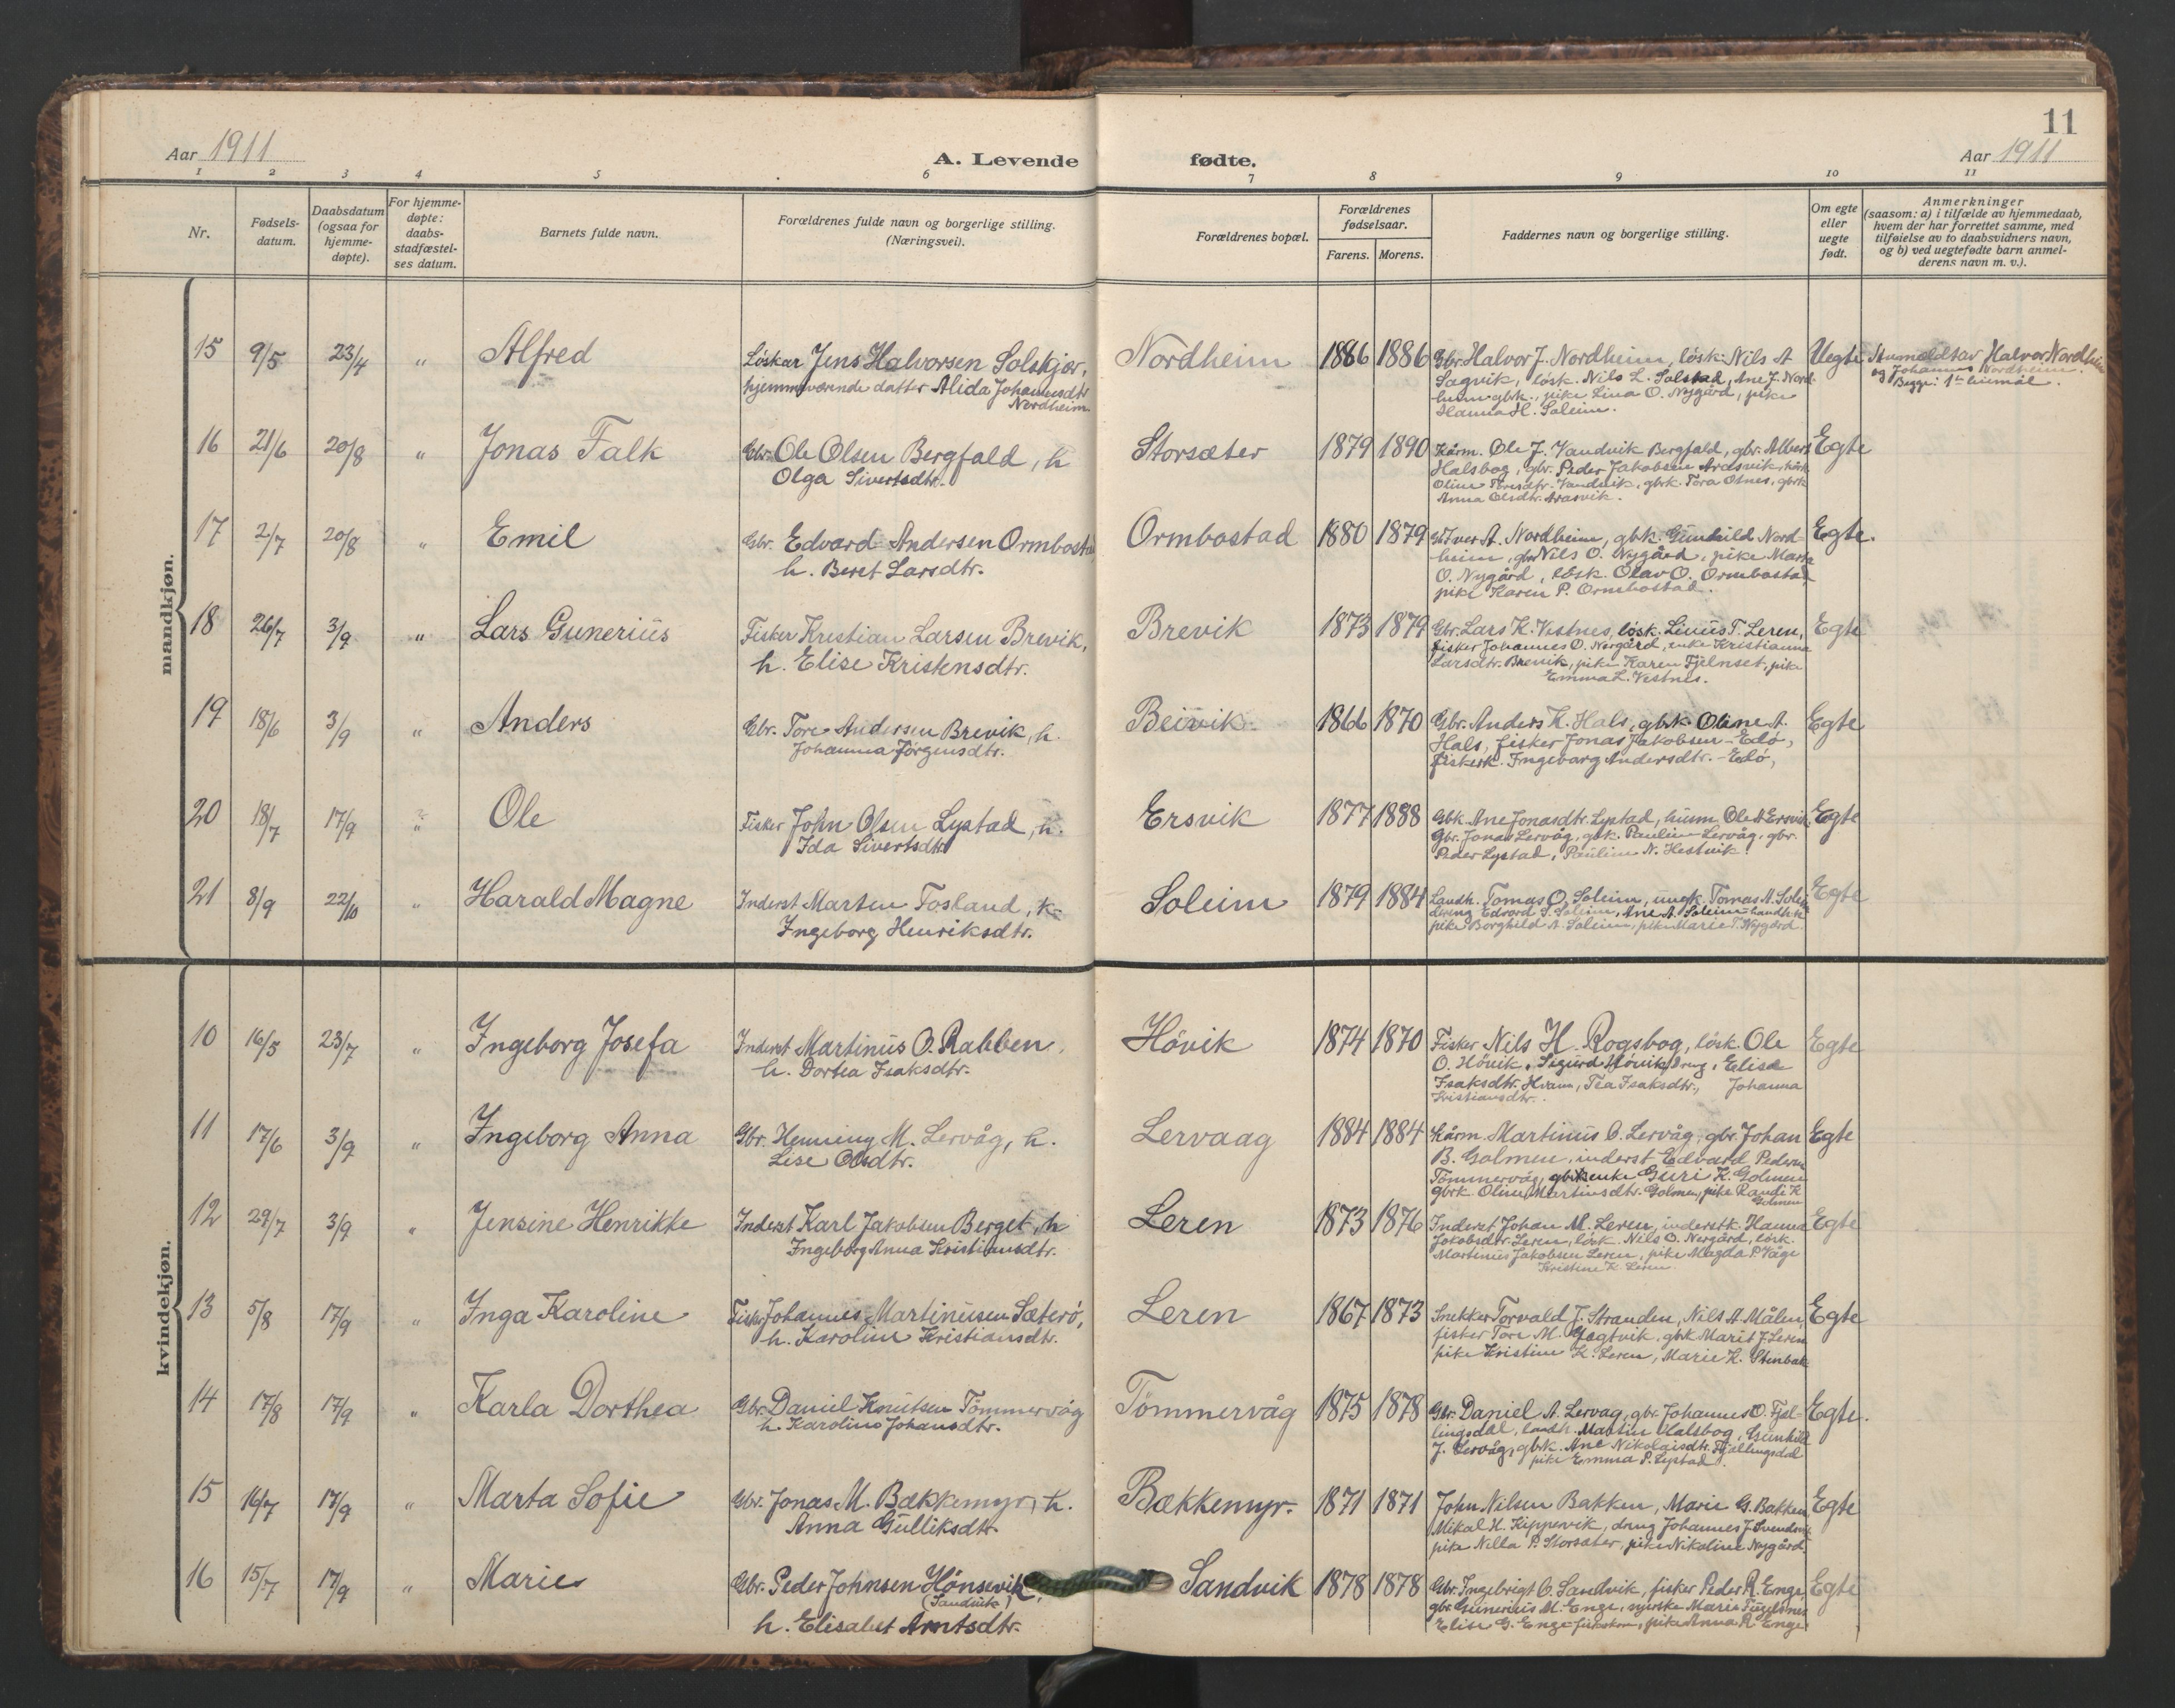 11
Aar 1911
A. Levende
fødte.
Aar 1911
1 2 3 4 5 6 7 8 9 10 11
Nr.
Fødsels-
datum.
Daabsdatum
(ogsaa for
hjemme-
døpte).
For hjemme-
døpte:
daabs-
stadfæstel-
ses datum.
Barnets fulde navn.
Forældrenes fulde navn og borgerlige stilling.
(Næringsvei).
Forældrenes bopæl.
Forældrenes
fødselsaar.
Farens. Morens.
Faddernes navn og borgerlige stilling.
Om egte
eller
uegte
født.
Anmerkninger
(saasom: a) i tilfælde av hjemmedaab,
hvem der har forrettet samme, med
tilføielse av to daabsvidners navn,
og b) ved uegtefødte barn anmel-
derens navn m. v.).
mandkjøn.
15 9/5 23/4 " Alfred
Löskar Jens Halvorsen Solskjær,
hjemmeværende datter Alida Johannesdtr
Nordheim
Nordheim 1886 1886
Gbr. Halvor J. Nordheim, lösk. Nils A
Sagvik, lösk. Nils L. Solstad, Ane J. Nord-
heim gbrk., pike Lina O. Nygård, pike
Hanna H. Soleim.
Uegte
Anmeldtav Halvor Nordheim
og Johannes Nordheim.
Begge: 1ste leiemål.
16 21/6 20/8 " Jonas Falk
Gbr. Ole Olsen Bergfald, h
Olga Sivertsdtr.
Storsæter 1879 1890
Kårm. Ole J. Vandvik Bergfald, gbr. Albert
Halsbog, gbr. Peder Jakobsen Arasvik, kårk
Oline Toresdtr. Vandvik, gbrk. Tora Otnes, gbrk
Anna Olsdtr. Arasvik.
Egte
17 2/7 20/8 " Emil
Gbr. Edvard Andersen Ormbostad
h. Beret Larsdtr.
Ormbostad 1880 1879
Gbr. Iver A. Nordheim, gbk. Gunhild Nord-
heim, gbr Nils O. Nygård, pike Marta
O. Nygård, lösk. Olav O. Ormbostad,
pike Karen P. Ormbostad.
Egte.
18 26/7 3/9 " Lars Gunerius
Fisker Kristian Larsen Brevik,
h. Elise Kristensdtr.
Brevik 1873 1879
Gbr. Lars K. Vestnes, lösk. Linus T. Leren,
fisker Johannes O. Nergård, enke Kristianna
Larsdtr. Brevik, pike Karen Fjelnset, pike
Emma L. Vestnes.
Egte
19 18/6 3/9 " Anders
Gbr. Tore Andersen Brevik, h.
Johanna Jörgensdtr.
Breivik 1866 1870
Gbr. Anders K. Hals, gbrk Oline A.
Hals, fisker Jonas Jakobsen-Edö,
fiskerk. Ingeborg Andersdtr.-Edö,
Egte
20 18/7 17/9 " Ole
Fisker John Olsen Lystad, h.
Ida Sivertsdtr
Ersvik 1877 1888
Gbk. Ane Jonasdtr. Lystad, husm Ole A Ersvik.
Gbr. Jonas Lervåg, gbk. Pauline Lervåg, gbr.
Peder Lystad, Pauline N. Hestvik.
Egte
21 8/9 22/10 " Harald Magne
Inderst Marten Fosland, k-
Ingeborg Henriksdtr.
Soleim 1879 1884
Landh. Tomas O. Soleim, ungk. Tomas A. Soleim
dreng Edvard S. Soleim, Ane A. Soleim-
pike Borghild A. Soleim, pike Marie T. Nygård.
Egte
kvindekjøn.
10 16/5 23/7 " Ingeborg Josefa
Inderst Martinus O. Rabben,
h. Dortea Isaksdtr.
Hövik 1874 1870
Fisker Nils H. Rogsbog, lösk. Ole
O. Hövik, Sigurd Hövik, dreng, Elise
Isaksdtr. Hvam, Tea Isaksdtr., Johanna
Kristiansdtr.
Egte
11 17/6 3/9 " Ingeborg Anna
Gbr. Henning M. Lervåg, h.
Lise Olsdtr.
Lervaag 1884 1884
Kårm. Martinus O. Lervåg, gbr. Johan
B. Golmen, inderst Edvard Pedersen
Tömmervåg, gbrksenke Guri K. Golmen
gbrk Oline Martinusdtr. Golmen, pike Randi K
Golmen
Egte
12 29/7 3/9 " Jensine Henrikke
Inderst Karl Jakobsen Berget, h
Ingeborg Anna Kristiansdtr.
Leren 1873 1876
Inderst Johan M. Leren, inderstk. Hanna
Jakobsdtr. Leren, lösk. Nils O. Nergård, lösk.
Martinus Jakobsen Leren, pike Magda P. Våge
Kristine K. Leren.
Egte
13 5/8 17/9 " Inga Karoline
Fisker Johannes Martinussen Sæterö,
h. Karoline Kristiansdtr.
Leren 1867 1873
Snekker Torvald J. Stranden, Nils A Målen,
fisker Tore M. Jagtvik, gbk Marit J. Leren
pike Kristine K. Leren, Marie K. Stenbak
Egte
14 17/8 17/9 " Karla Dorthea
Gbr. Daniel Knutsen Tömmervåg
h. Karoline Johansdtr.
Tömmervåg 1875 1878
Gbr. Daniel A. Lervåg, gbr. Johannes O. Fjel-
lingsdal, landh. Martin Halsbog, Gunhild
J. Lervåg, gbrk. Ane Nikolaisdtr. Fjellingsdal
pike Emma P. Lystad.
Egte.
15 16/7 17/9 " Marta Sofie
Gbr. Jonas M. Bækkemyr, h.
Anna Gulliksdtr.
Bækkemyr. 1871 1871
John Nilsen Bakken, Marie G. Bakken
Mikal H. Kippervik, dreng Johannes J. Svendsvik
pike Nilla P. Storsæter, pike Nikoline Nygård.
Egte
16 15/7 17/9 " Marie
Gbr. Peder Johnsen Hönsvik,
(Sandvik)
h. Elisabet Arntsdtr.
Sandvik 1878 1878
Gbr. Ingebrigt O. Sandvik, fisker Peder R. Enge,
gbr. Gunerius M. Enge, syerske Marie Fugelsnes
Elise G. Enge fiskerkone, pike Anna R Enge.
Egte